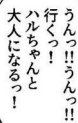 うんっ!!うんっ!!
行くっ!
ハルちゃんと
大人になるっ!